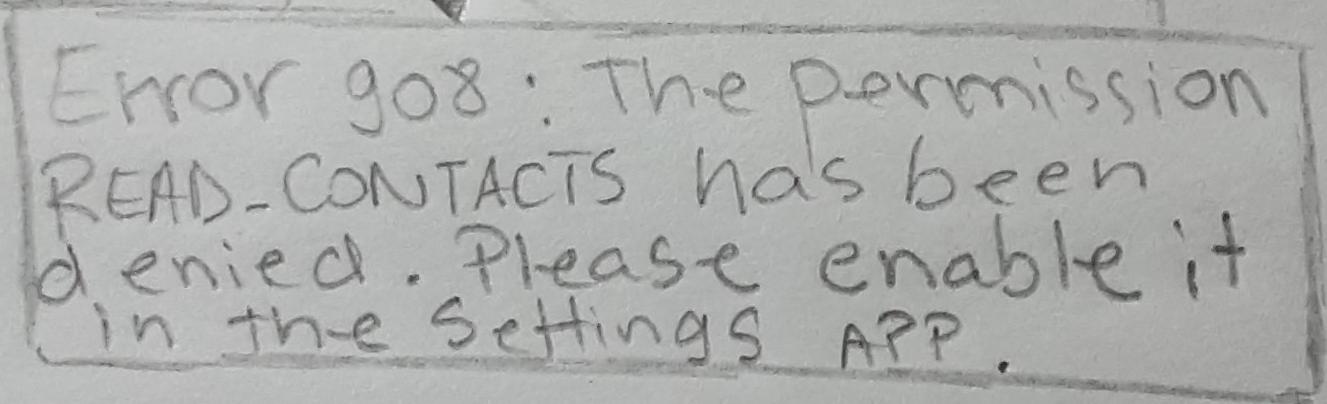 Error 908: The permission
READ_CONTACTS has been
denied. Please enable it
in the Settings APP.